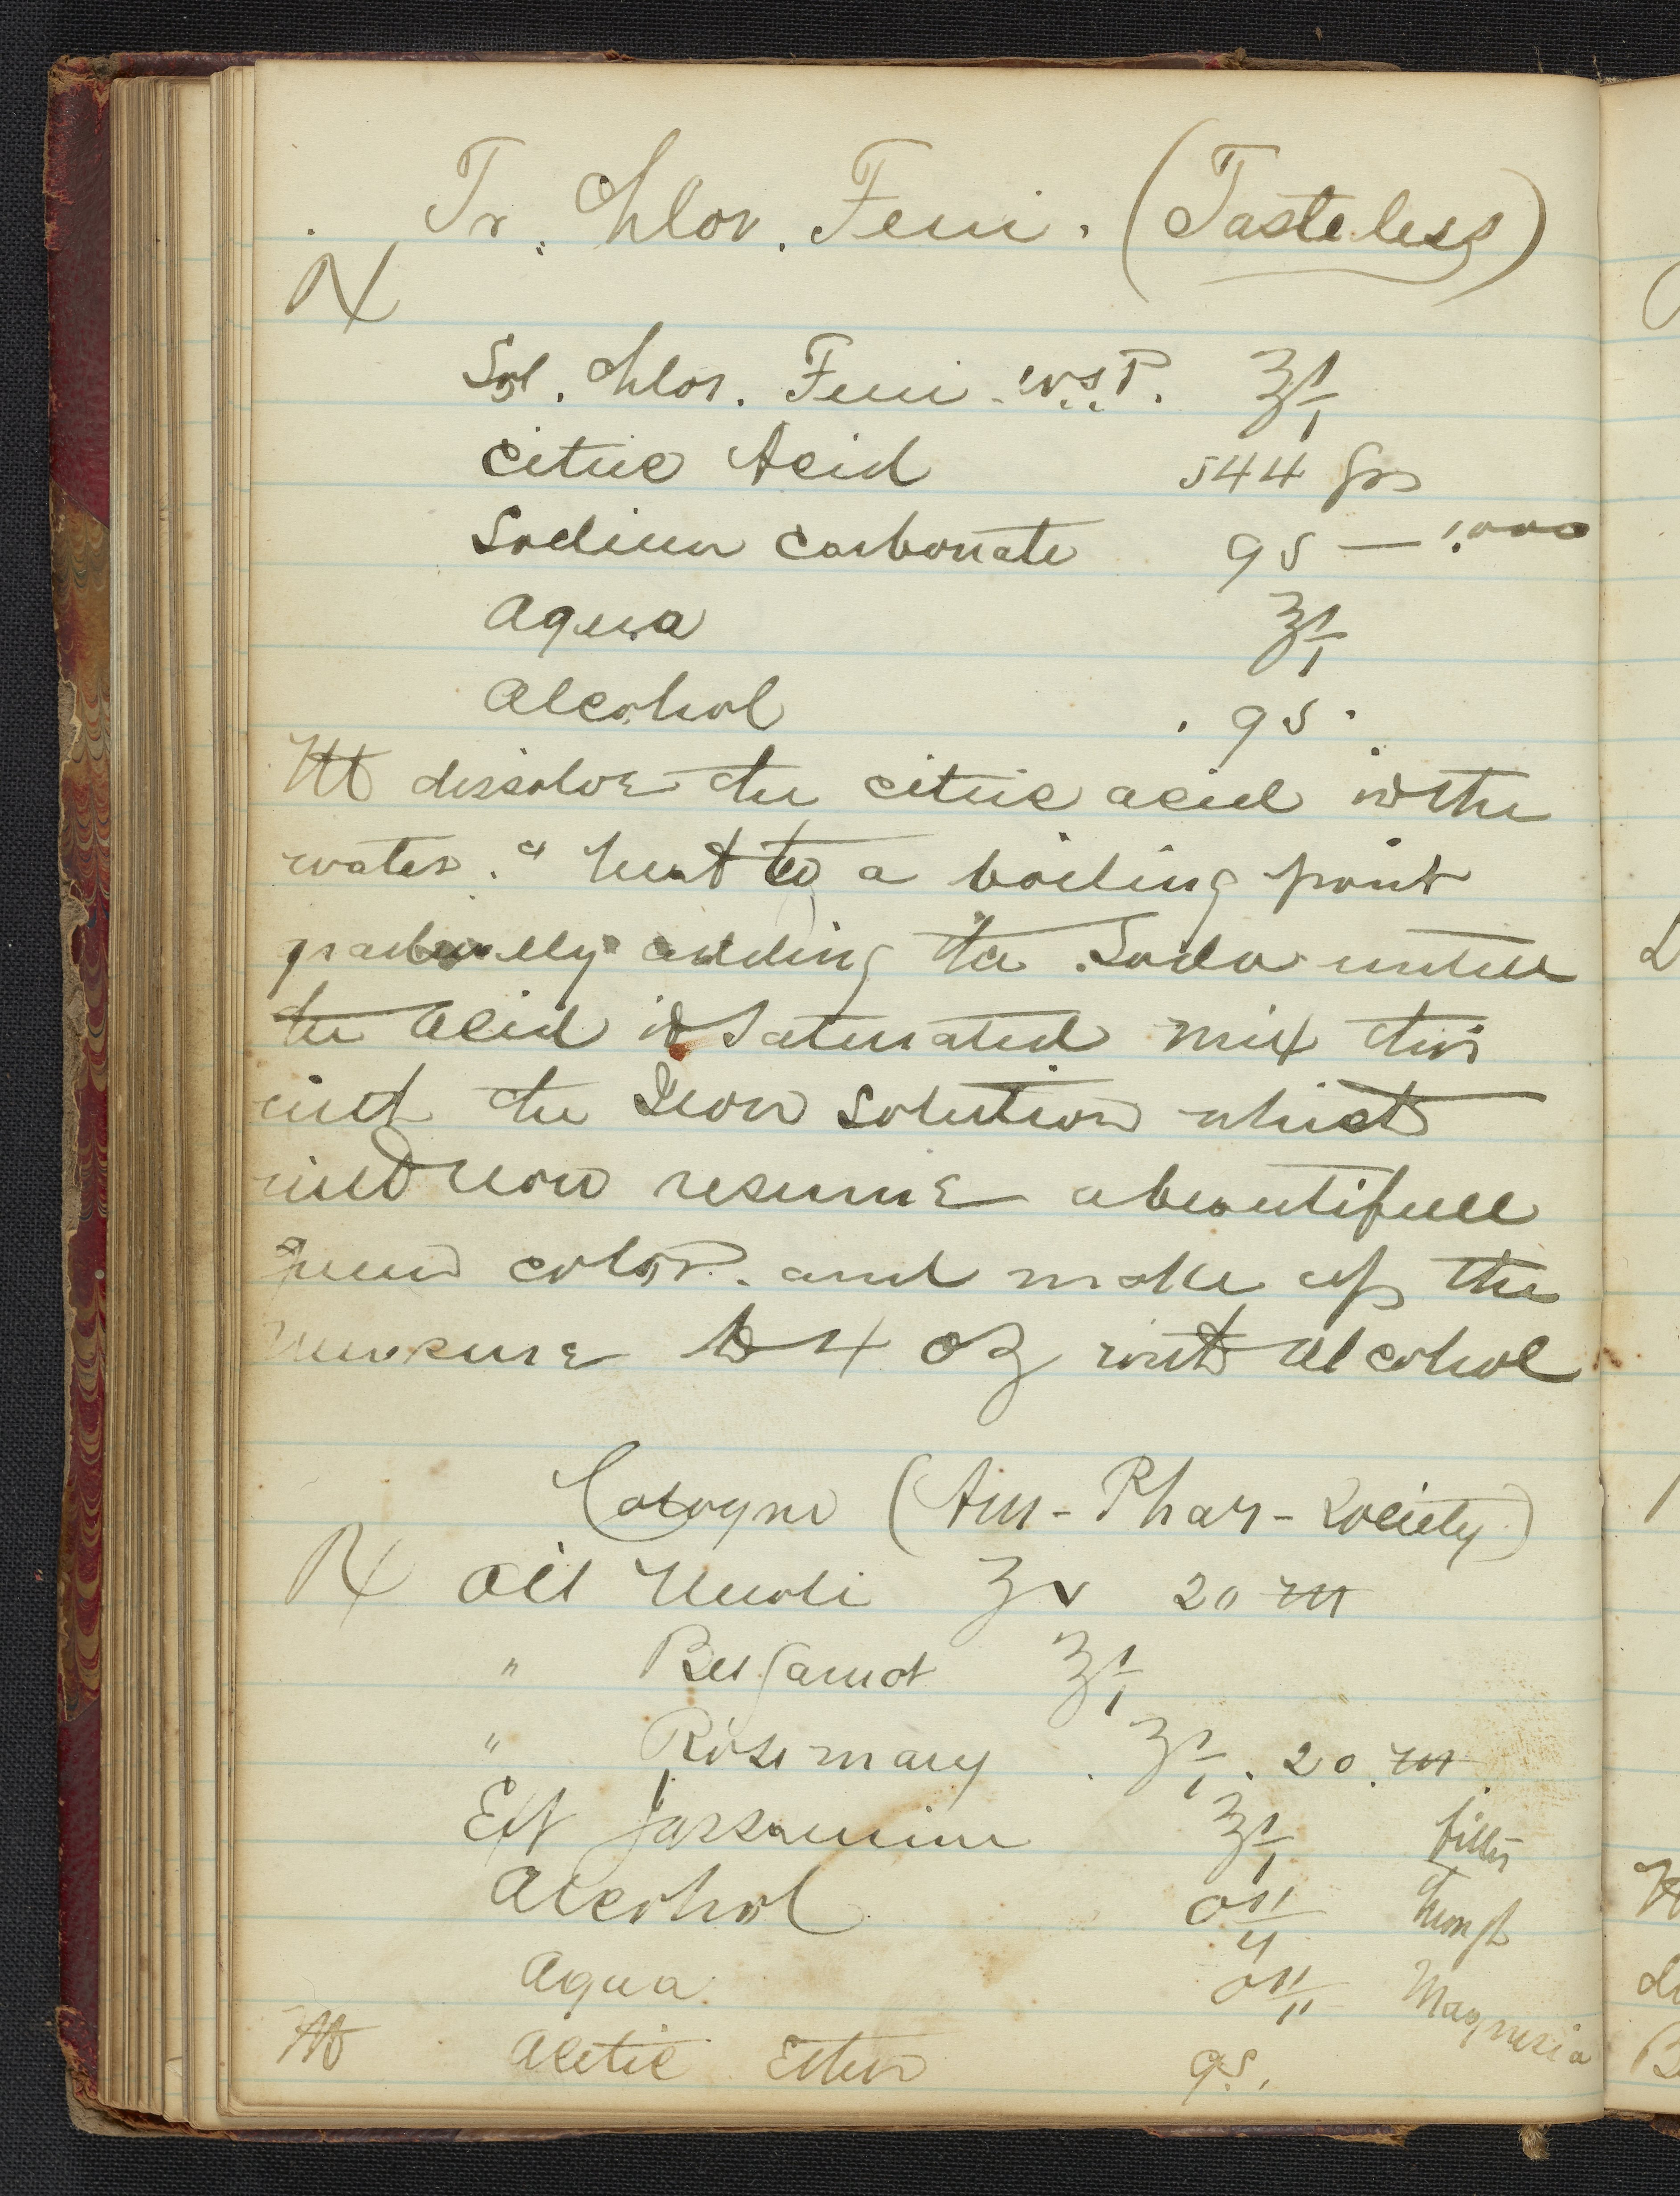 Tr. Chlor. Ferri. (Tasteless)
℞
Sol. Chlor. Ferri. U.S.P. ℥ i
Citric Acid 544 grs
Sodium Carbonate qs —
Aqua ℥ i
Alcohol . qs .
M dissolve the citric acid in the
water. & heat to a boiling point
gradually adding the Soda untill
the acid is Saturated mix this
with the Iron Solution which
will now resume a beautifull
green color. and make up the
measure to 4 oz with Alcohol
Cologne (Am - Phar - Society)
℞ Oil Neroli ʒ v 20 ♏
" Bergamot ℥ i
" Rosemary . ʒ i . 20 . ♏ .
Ext Jassamine ℥ i filter
Alcohol O ii through
Aqua O ii Magnesia
M Acetic Ether qs.